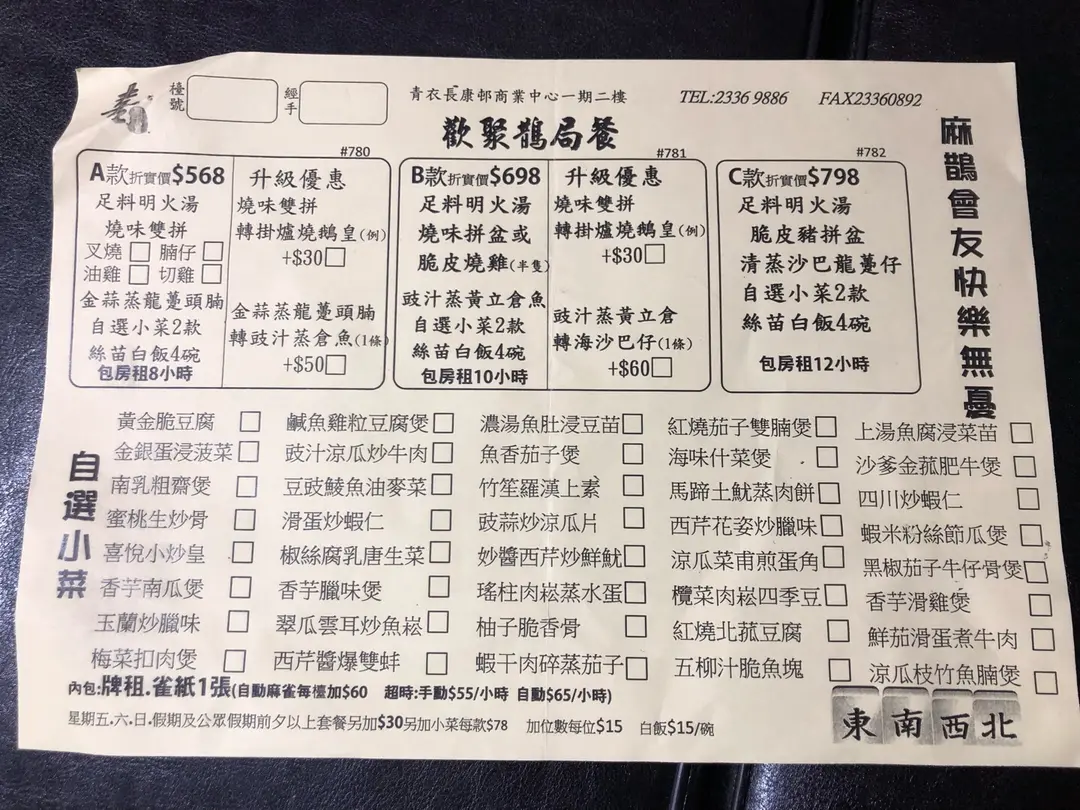 壽
檯號
經手
青衣長康邨商業中心一期二樓
TEL:2336 9886 FAX23360892
歡聚鵲局餐
麻鵲會友快樂無憂
#780
A款折實價$568
足料明火湯
燒味雙拼
叉燒 □ 腩仔 □
油雞 □ 切雞 □
金蒜蒸龍躉頭腩
自選小菜2款
絲苗白飯4碗
包房租8小時
升級優惠
燒味雙拼
轉掛爐燒鵝皇(例)
+$30□
金蒜蒸龍躉頭腩
轉豉汁蒸倉魚(1條)
+$50□
#781
B款折實價$698
足料明火湯
燒味拼盆或
脆皮燒雞(半隻)
豉汁蒸黃立倉魚
自選小菜2款
絲苗白飯4碗
包房租10小時
升級優惠
燒味雙拼
轉掛爐燒鵝皇(例)
+$30□
豉汁蒸黃立倉
轉海沙巴仔(1條)
+$60□
#782
C款折實價$798
足料明火湯
脆皮豬拼盆
清蒸沙巴龍躉仔
自選小菜2款
絲苗白飯4碗
包房租12小時
自選小菜
黃金脆豆腐 □
金銀蛋浸菠菜 □
南乳粗齋煲 □
蜜桃生炒骨 □
喜悅小炒皇 □
香芋南瓜煲 □
玉蘭炒臘味 □
梅菜扣肉煲 □
鹹魚雞粒豆腐煲 □
豉汁涼瓜炒牛肉 □
豆豉鯪魚油麥菜 □
滑蛋炒蝦仁 □
椒絲腐乳唐生菜 □
香芋臘味煲 □
翠瓜雲耳炒魚崧 □
西芹醬爆雙蚌 □
濃湯魚肚浸豆苗 □
魚香茄子煲 □
竹笙羅漢上素 □
豉蒜炒涼瓜片 □
妙醬西芹炒鮮魷 □
瑤柱肉崧蒸水蛋 □
柚子脆香骨 □
蝦干肉碎蒸茄子 □
紅燒茄子雙腩煲 □
海味什菜煲 □
馬蹄土魷蒸肉餅 □
西芹花姿炒臘味 □
涼瓜菜甫煎蛋角 □
欖菜肉崧四季豆 □
紅燒北菰豆腐 □
五柳汁脆魚塊 □
上湯魚腐浸菜苗 □
沙爹金菰肥牛煲 □
四川炒蝦仁 □
蝦米粉絲節瓜煲 □
黑椒茄子牛仔骨煲 □
香芋滑雞煲 □
鮮茄滑蛋煮牛肉 □
涼瓜枝竹魚腩煲 □
內包:牌租.雀紙1張(自動麻雀每檯加$60 超時:手動$55/小時 自動$65/小時)
星期五.六.日.假期及公眾假期前夕以上套餐另加$30另加小菜每款$78 加位數每位$15 白飯$15/碗
東南西北